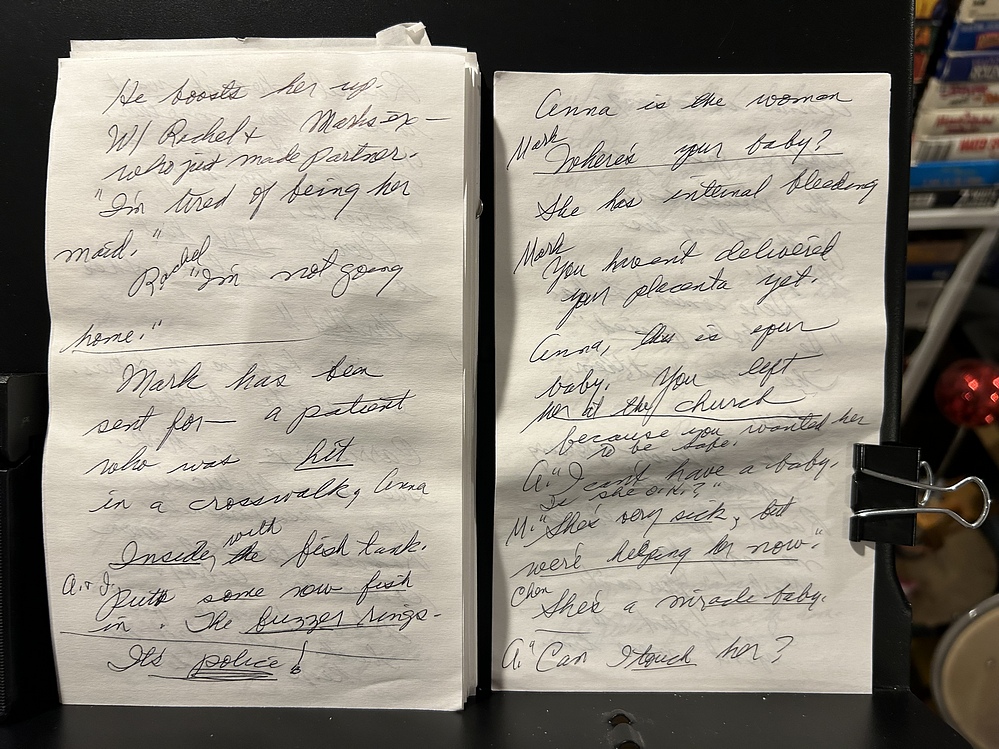 He boosts her up.
W/ Rachel + Marks ex—
who just made partner.
"I'm tired of being her
maid."
Rachel "I'm not going
home."
Mark has been
sent for— a patient
who was hit
in a crosswalk, Anna
Inside, with the fish tank.
A. + J.
Puts some new fish
in. The buzzer rings-
It's police!
Anna is the woman
Mark
Where's your baby?
She has internal bleeding
Mark
You haven't delivered
your placenta yet.
Anna, this is your
baby. You left
her at the church
because you wanted her
to be safe.
A: "I can't have a baby.
Is she o.k.?"
M: "She's very sick, but
we're helping her now."
Chen
She's a miracle baby.
A. "Can I touch her?